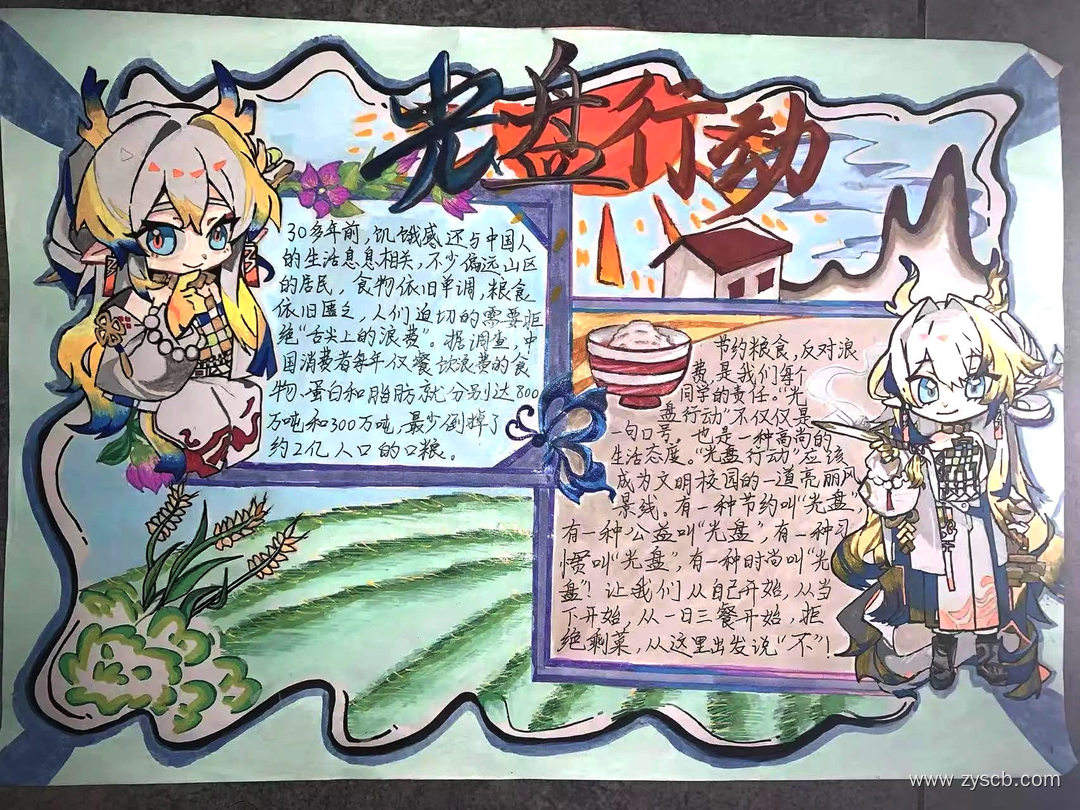 光盘行动
30多年前,饥饿感还与中国人
的生活息息相关,不少偏远山区
的居民,食物依旧单调,粮食
依旧匮乏,人们迫切的需要拒
绝“舌尖上的浪费”。据调查,中
国消费者每年仅餐饮浪费的食
物蛋白和脂肪就分别达800
万吨和300万吨,最少倒掉了
约2亿人口的口粮。
节约粮食,反对浪
费,是我们每个
同学的责任。“光
盘行动”不仅仅是
一句口号。也是一种高尚的
生活态度。“光盘行动”应该
成为文明校园的一道亮丽风
景线。有一种节约叫“光盘”,
有一种公益叫“光盘”,有一种习
惯叫“光盘”,有一种时尚叫“光
盘”!让我们从自己开始,从当
下开始,从一日三餐开始,拒
绝剩菜,从这里出发说“不”!
www.zyscb.com